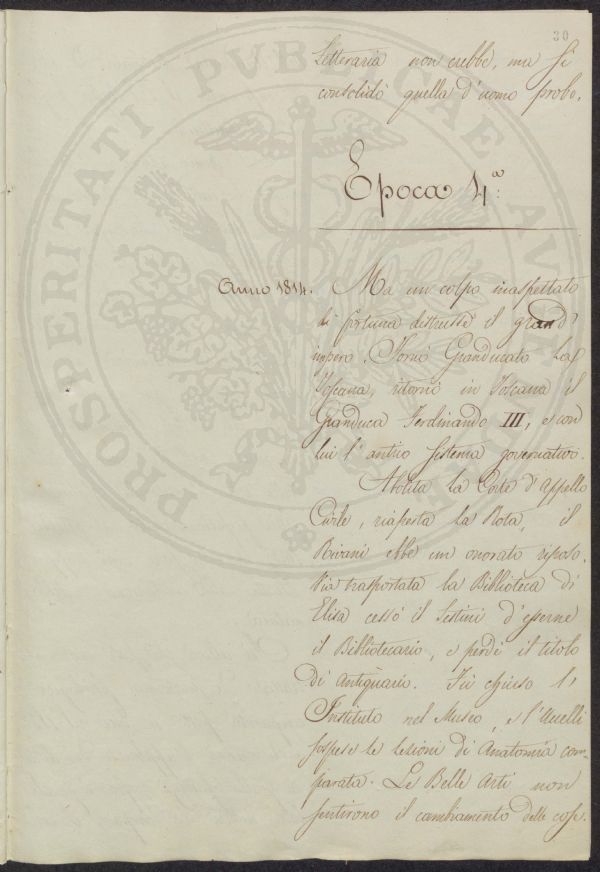 30
Letteraria non crebbe, ma si
consolidò quella d'uomo probo.
Epoca 4ª:
Anno 1814. Ma un colpo inaspettato
di fortuna distrusse il grand'
impero. Tornò Granducato la
Toscana, ritornò in Toscana il
Granduca Ferdinando III, e con
lui l'antico sistema governativo.
Abolita la Corte d'Appello
Civile, riaperta la Rota, il
Rivani ebbe un onorato riposo.
Via trasportata la Biblioteca di
Elisa cessò il Sestini d'esserne
il Bibliotecario, e perdé il titolo
di Antiquario. Fù chiuso l'
Instituto nel Museo, e l'Uccelli
sospese le lezioni di Anatomia com-
parata. Le Belle Arti non
sentirono il cambiamento delle cose.
PROSPERITATI PVBLICAE